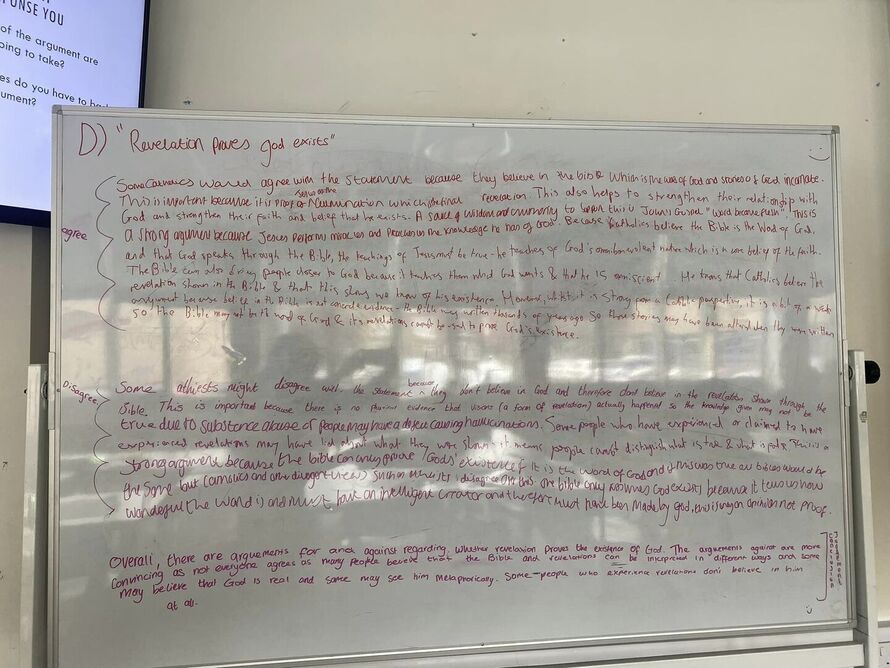 ONSE YOU
of the argument are
oing to take?
es do you have to ba
ument?
D) "Revelation proves god exists"
Some Catholics would agree with the statement because they believe in the bible which is the word of God and stories of God incarnate.
This is important because it is proof of which revelation. This also helps to strengthen their relationship with
God and strengthen their faith and belief that he exists. A source of wisdom and to support this is John's Gospel "Word became flesh". This is
a strong argument because Jesus performs miracles and the knowledge to man of God. Because Catholics believe the Bible is the Word of God,
and that God speaks through the Bible, the teachings of Jesus must be true - he teaches of God's omnibenevolent nature which is a core belief of the faith.
The Bible can also bring people closer to God because it teaches them what God wants & that he is omniscient. He means that Catholics believe the
revelation shown in the Bible & that this shows we know of his existence. However, whilst it is strong from a Catholic perspective, it is a bit of a weak
argument because belief in the Bible is not concrete evidence - the Bible was written thousands of years ago so these stories may have been altered when they were written
so the Bible may not be the word of God & its revelations cannot be used to prove God's existence.
agree
Disagree
Some athiests might disagree with the statement because they don't believe in God and therefore don't believe in the revelation shown through the
Bible. This is important because there is no physical evidence that visions (a form of revelation) actually happened so the knowledge given may not be
true due to substance abuse or people may have a causing hallucinations. Some people who have experienced or claimed to have
experienced revelations may have lied about what they were shown it means people cannot distinguish what is true & what is false. This is a
strong argument because the bible can only prove God's existence if it is the word of God and if this was true all bibles would be
the same but Catholics and disagree the bible only God exists because it tells us how
wonderful the world is and must have an intelligent creator and therefore must have been made by god, this is only an opinion not proof.
Overall, there are arguements for and against regarding whether revelation proves the existence of God. The arguements against are more
convincing as not everyone agrees as many people believe that the Bible and revelations can be interpreted in different ways and some
may believe that God is real and some may see him metaphorically. Some people who experience revelations don't believe in him
at all.
Judgement
Conclusion